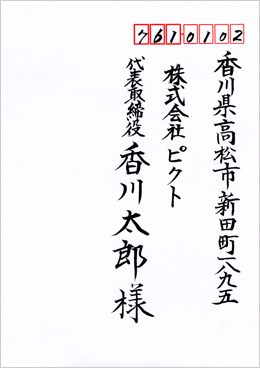 761-0102
香川県高松市新田町一八九五
株式会社ピクト
代表取締役
香川太郎様